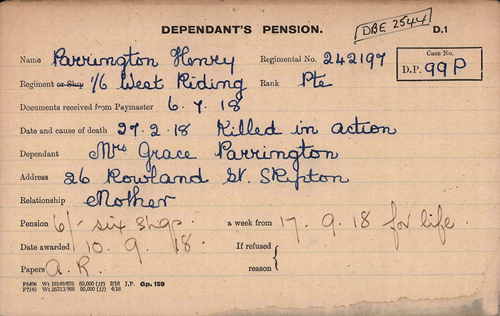 DEPENDANT'S PENSION. DBE 2544 D.1
Name Parrington Henry Regimental No. 242197 Case No.
Regiment or Ship 1/6 West Riding Rank Pte D.P. 99P
Documents received from Paymaster 6.7.18
Date and cause of death 27.2.18 Killed in action
Dependant Mrs Grace Parrington
Address 26 Rowland St. Skipton
Relationship Mother
Pension 6/- six shgs. a week from 17.9.18 for life.
Date awarded 10.9.18. If refused
Papers A.R. reason
F6496 Wt.18149/875 50,000 (17) 2/18 J.P. Gp. 159
P7145 Wt.25713/988 50,000 (17) 4/18